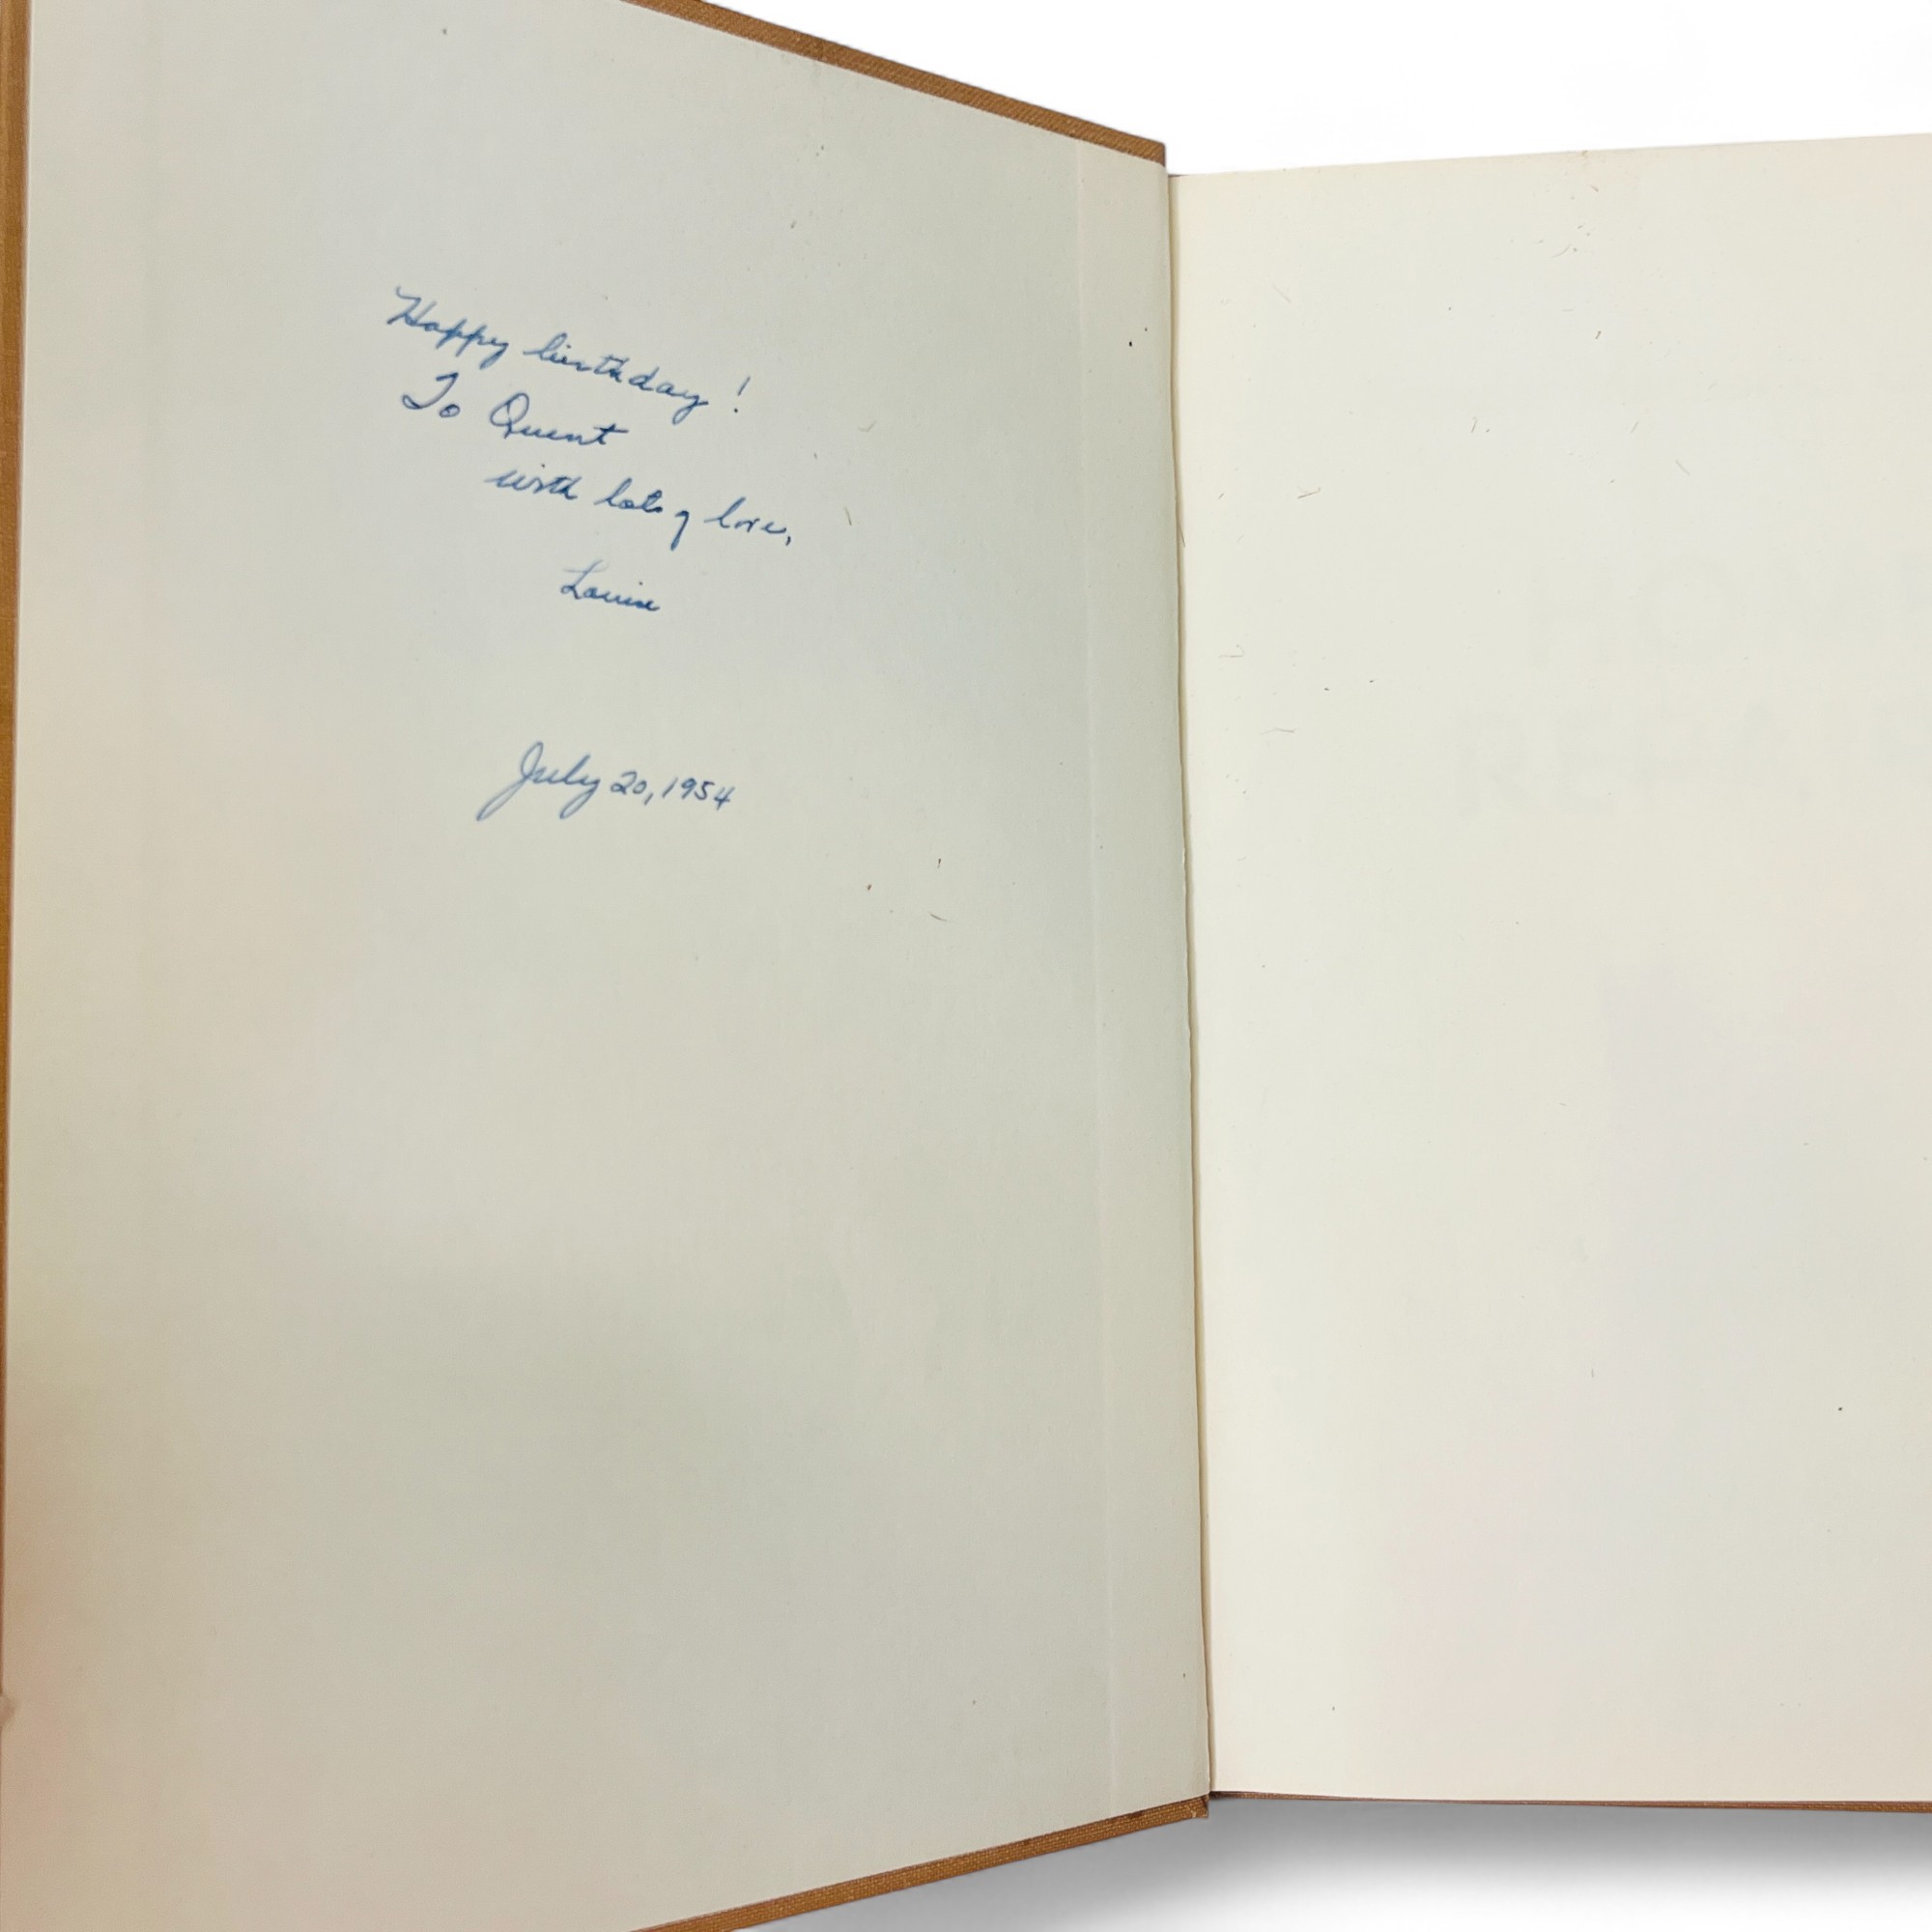 Happy birthday!
To Quent
with lots of love,
Louise
July 20, 1954